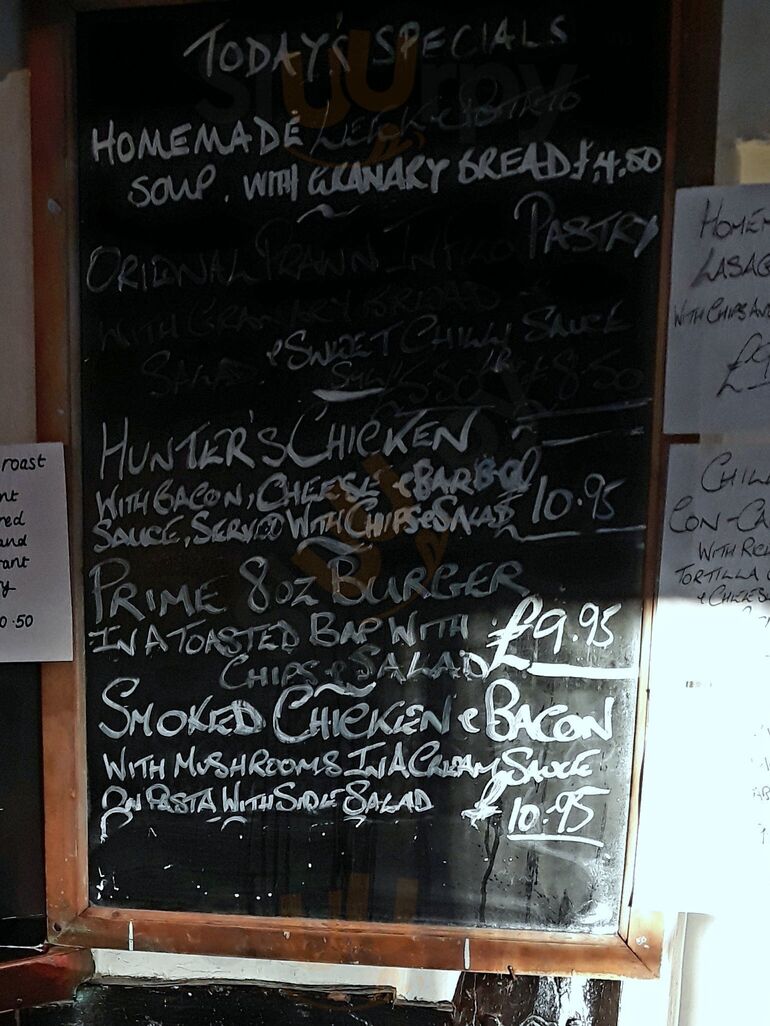 TODAY'S SPECIALS
HOMEMADE LEEK & POTATO
SOUP. WITH GRANARY BREAD £4.80
ORIENTAL PRAWN IN FILO PASTRY
WITH GRANARY BREAD
SALAD & SWEET CHILLI SAUCE
5.50 £8.50
HUNTER'S CHICKEN
WITH BACON, CHEESE & BARBQ
SAUCE, SERVED WITH CHIPS & SALAD 10.95
PRIME 8OZ BURGER
IN A TOASTED BAP WITH £9.95
CHIPS & SALAD
SMOKED CHICKEN & BACON
WITH MUSHROOMS IN A CREAM SAUCE
ON PASTA WITH SIDE SALAD £10.95
roast
0.50
HOMEM
LASAG
WITH CHIPS AN
£9
CHIL
CON-CA
WITH RICE
TORTILLA C
& CHEESE
Sluurpy